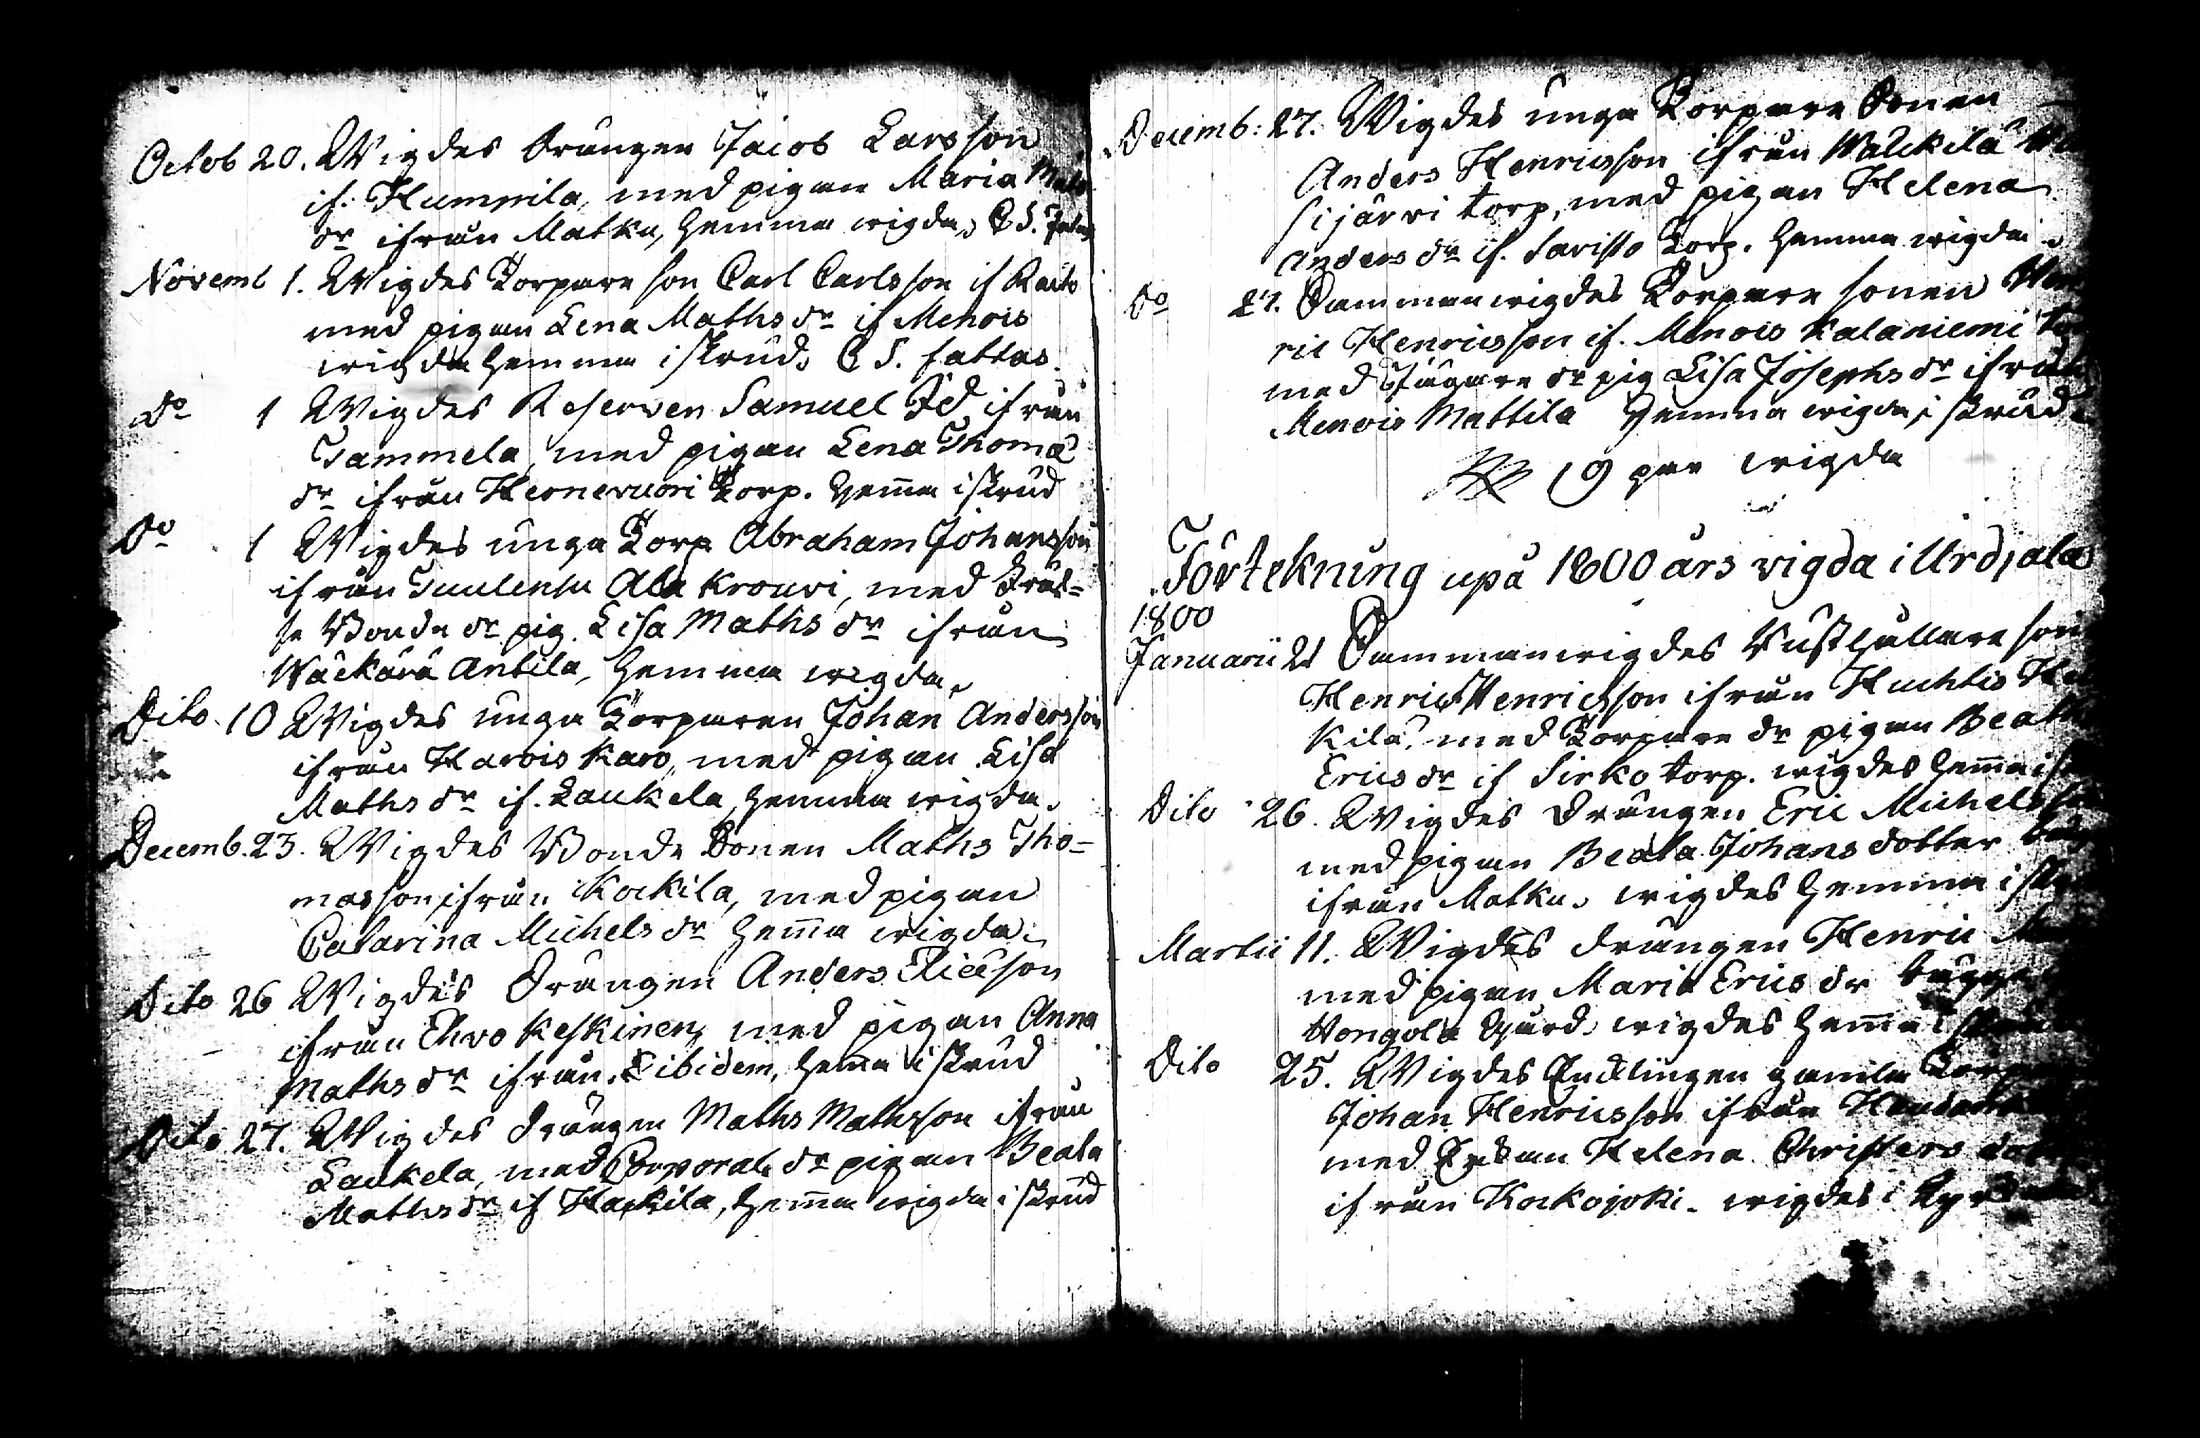 Octob 20. Wigdes drängen Jacob Larsson
if. Hummila, med pigan Maria Maths
dr ifrån Matku, hemma wigda, C S.
Novemb 1. Wigdes Torpare son Carl Carlsson if Raito
med pigan Lena Maths dr if Menois
wigda hemma i skrud, C S. fattas.
do 1 Wigdes Reserven Samuel ifrån
Tammela, med pigan Lena Thomæ
dr ifrån Hernevuori Torp. hema i skrud
Do 1 Wigdes unga Torp Abraham Johansson
ifrån Tuulensu Ala krouvi, med
Bonde dr pig. Lisa Maths dr ifrån
Wäckärä Antila, hemma wigda,
Dito 10 Wigdes unga Torparen Johan Andersson
ifrån Harvis karo, med pigan Lisa
Maths dr if. Laukela, hemma wigda.
Decemb. 23. Wigdes Bonde Sonen Maths Tho=
masson, ifrån Kockila, med pigan
Catarina Michels dr hema wigda.
Dito 26 Wigdes Drängen Anders Ericsson
ifrån Ehro Keskinen, med pigan Anna
Maths dr ifrån ibidem, hema i skrud
Dito 27. Wigdes drängen Maths Mathsson ifrån
Laukela, med Corporals dr pigan Beata
Maths dr if Hackila, hema wigda i skrud
Decemb: 27. Wigdes unga Torpare Sonen
Anders Henricsson ifrån Walckila
sijärvi torp, med pigan Helena
Anders dr if. Saristo Torp. hemma wigda
Do 27. Sammanwigdes Torpare sonen Hen
ric Henricsson if. Menois Kalaniemi
med Jägare dr pig Lisa Josephs dr ifrån
Menois Mattila hemma wigda, i skrud
19 par wigda
Förtekning upå 1800 års vigda i Urdjala
1800
Januarii 21 Sammanwigdes Rusthållare son
Henric Henricsson ifrån Huchtis
kilä, med Torpare dr pigan Beata
Erics dr if Sirko torp. wigdes hema i
Dito 26. Wigdes drängen Eric Michelsson
med pigan Beata Johans dotter
ifrån Matku, wigdes hemma i
Martii 11. Wigdes drängen Henric
med pigan Maria Erics dr
Hongola Gård, wigdes hema i
Dito 25. Wigdes Encklingen gamla
Johan Henricsson ifrån
med Enkan Helena Christers
ifrån Kockojoki. wigdes i